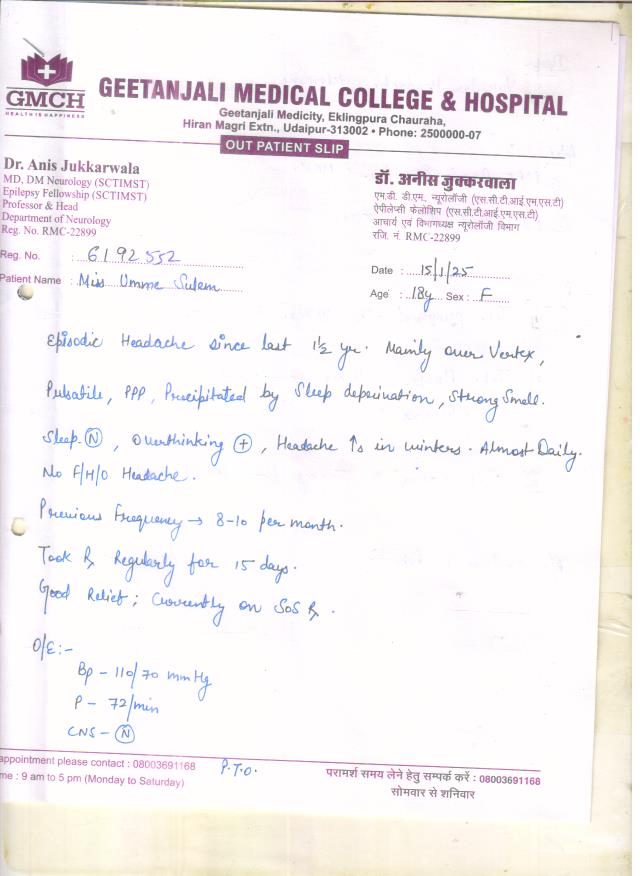 GMCH
HEALTH IS HAPPINESS
GEETANJALI MEDICAL COLLEGE & HOSPITAL
Geetanjali Medicity, Eklingpura Chauraha,
Hiran Magri Extn., Udaipur-313002 • Phone: 2500000-07
OUT PATIENT SLIP
Dr. Anis Jukkarwala
MD, DM Neurology (SCTIMST)
Epilepsy Fellowship (SCTIMST)
Professor & Head
Department of Neurology
Reg. No. RMC-22899
डॉ. अनीस जुक्करवाला
एम.डी. डी.एम., न्यूरोलॉजी (एस.सी.टी.आई.एम.एस.टी)
ऐपीलेप्सी फेलोशिप (एस.सी.टी.आई.एम.एस.टी)
आचार्य एवं विभागाध्यक्ष न्यूरोलॉजी विभाग
रजि. नं. RMC-22899
Reg. No. : 6192552
Patient Name : Miss Umme Sulem
Date : 15/1/25
Age : 18y Sex : F
Episodic Headache since last 1½ yr. Mainly over Vertex,
Pulsatile, PPP, Precipitated by Sleep deprivation, Strong Smell.
Sleep (N), Overthinking (+), Headache ↑s in winters. Almost Daily.
No F/H/O Headache.
Previous Frequency → 8-10 per month.
Took Rx Regularly for 15 days.
Good Relief; Currently on SOS Rx.
O/E:-
Bp - 110/70 mmHg
P - 72/min
CNS - (N)
P.T.O.
appointment please contact : 08003691168
me : 9 am to 5 pm (Monday to Saturday)
परामर्श समय लेने हेतु सम्पर्क करें : 08003691168
सोमवार से शनिवार